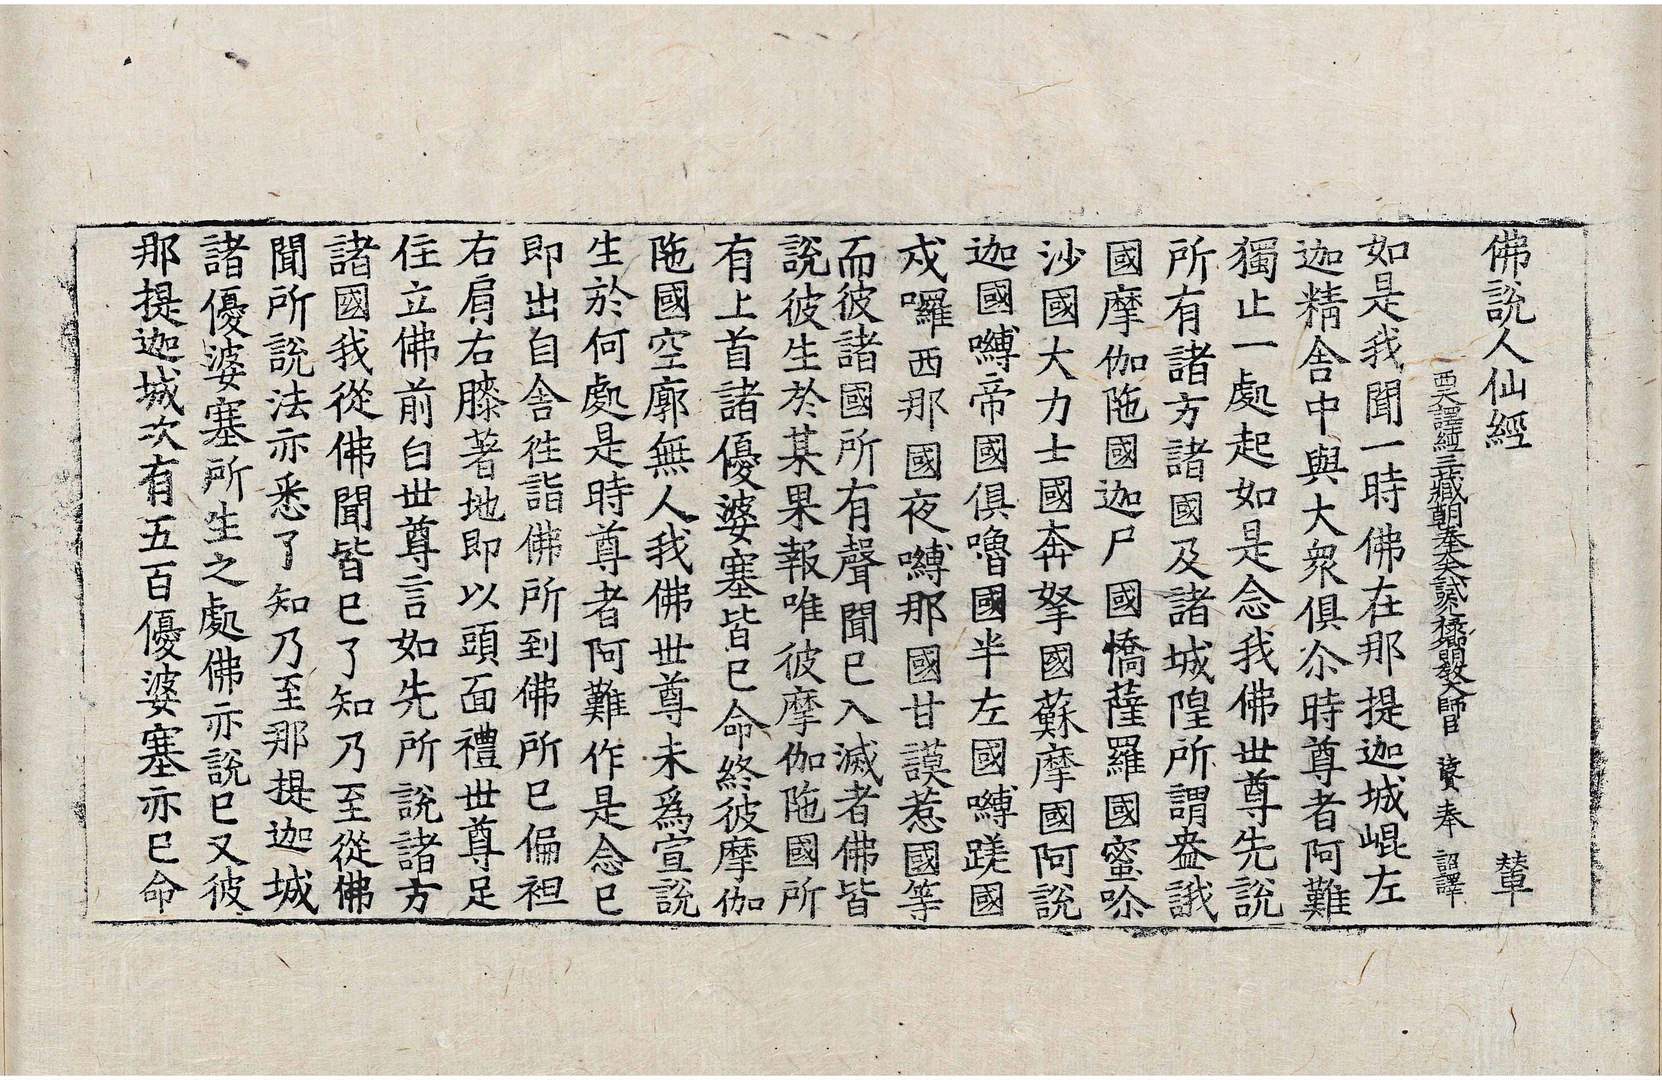 佛說人仙經 輦
西天譯經三藏朝奉大夫試光祿卿明教大師臣 法賢奉 詔譯
如是我聞一時佛在那提迦城崐左
迦精舍中與大衆俱尒時尊者阿難
獨止一處起如是念我佛世尊先說
所有諸方諸國及諸城隍所謂盎誐
國摩伽陁國迦尸國憍薩羅國蜜㖮
沙國大力士國奔拏國蘇摩國阿說
迦國嚩帝國俱嚕國半左國嚩蹉國
戍囉西那國夜嚩那國甘謨惹國等
而彼諸國所有聲聞已入滅者佛皆
說彼生於某果報唯彼摩伽陁國所
有上首諸優婆塞皆已命終彼摩伽
陁國空廓無人我佛世尊未爲宣說
生於何處是時尊者阿難作是念已
即出自舍徃詣佛所到佛所已偏袒
右肩右膝著地即以頭面禮世尊足
住立佛前白世尊言如先所說諸方
諸國我從佛聞皆已了知乃至從佛
聞所說法亦悉了知乃至那提迦城
諸優婆塞所生之處佛亦說已又彼
那提迦城次有五百優婆塞亦已命